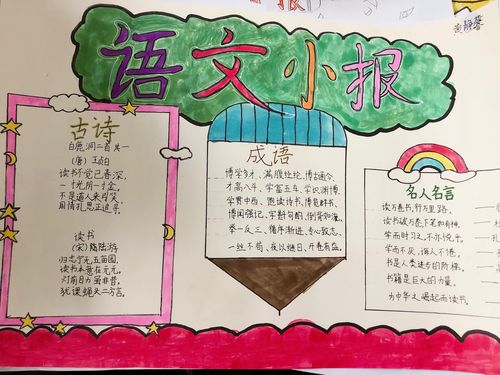 语文小报
古诗
白鹿洞二首 其一
(唐) 王贞白
读书不觉已春深,
一寸光阴一寸金。
不是道人来引笑,
周情孔思正追寻。
读书
(宋) 陆游
归志宁无五亩园,
读书本意在元元。
灯前目力虽非昔,
犹课蝇头二万言。
成语
博学多才、满腹经纶、博古通今、
才高八斗、学富五车、学识渊博、
学贯中西、饱读诗书、博览群书、
博闻强记、字斟句酌、倒背如流、
举一反三、循序渐进、专心致志、
一丝不苟、夜以继日、开卷有益
名人名言
读万卷书,行万里路。
读书破万卷,下笔如有神。
学而时习之,不亦悦乎。
学而不厌,诲人不倦。
书是人类进步的阶梯。
书籍是巨大的力量。
为中华之崛起而读书